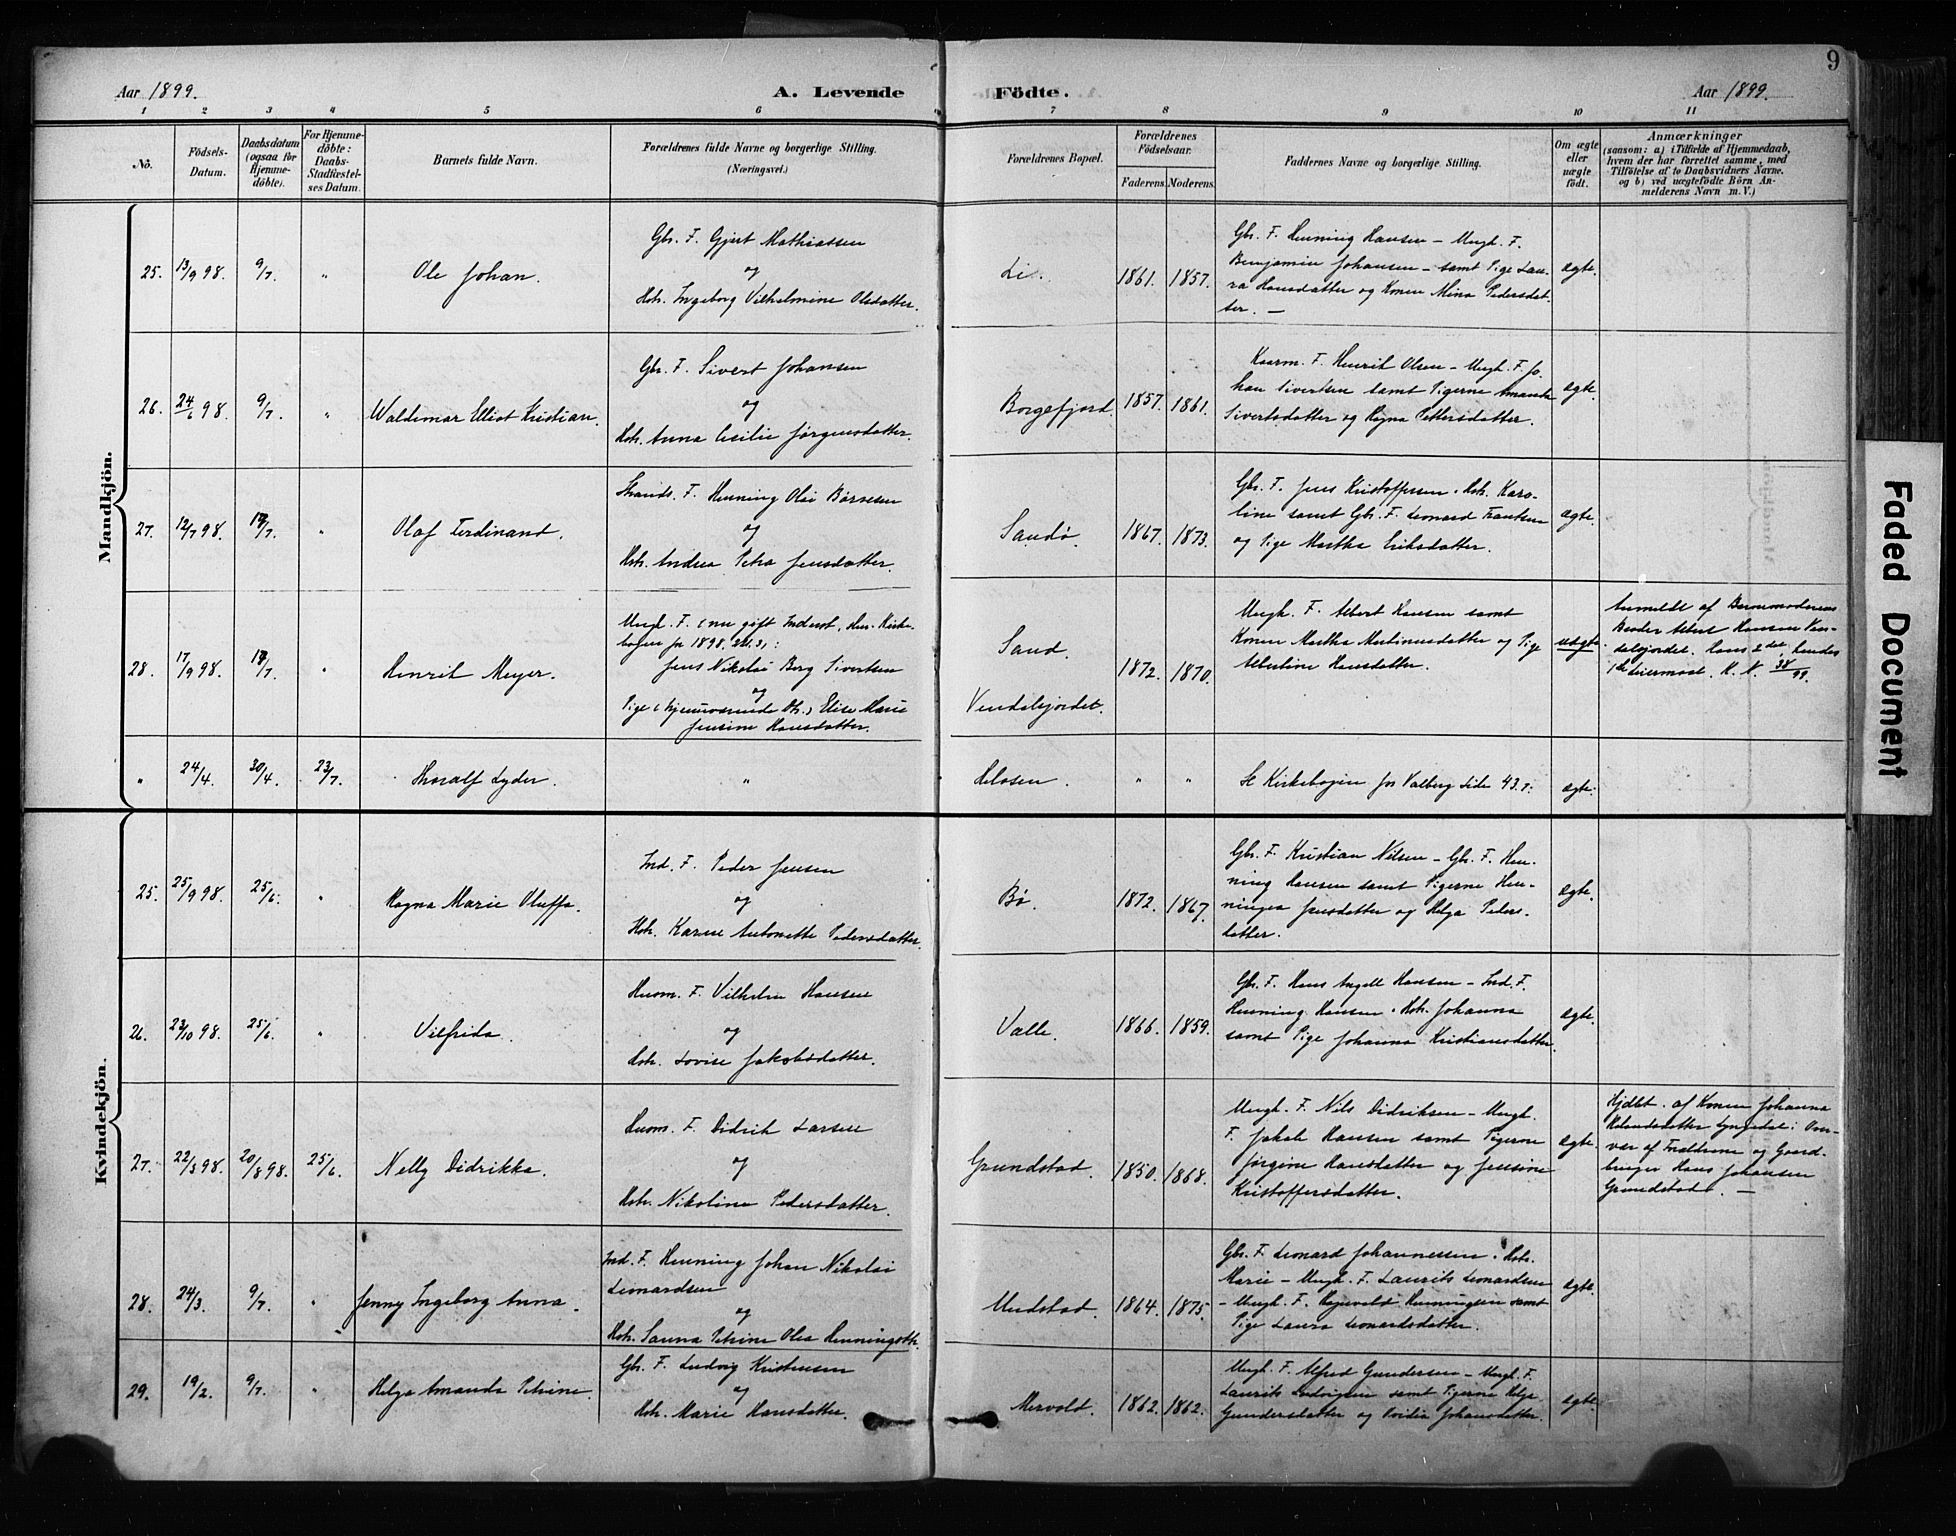 9
Aar 1899.
A. Levende
Födte.
Aar 1899.
1 2 3 4 5 6 7 8 9 10 11
No.
Födsels-
Datum.
Daabsdatum
(ogsaa for
Hjemme-
döbte).
For Hjemme-
döbte:
Daabs-
Stadfæstel-
ses Datum.
Barnets fulde Navn.
Forældrenes fulde Navne og borgerlige Stilling.
(Næringsvei.)
Forældrenes Bopæl.
Forældrenes
Födselsaar.
Faderens. Moderens.
Faddernes Navne og borgerlige Stilling.
Om ægte
eller
uægte
födt.
Anmærkninger
(saasom: a) i Tilfælde af Hjemmedaab,
hvem der har forrettet samme, med
Tilföielse af to Daabsvidners Navne.
og b) ved uægtefödte Börn An-
melderens Navn m. V.)
Mandkjön.
25. 13/9 98. 9/7. " Ole Johan.
Gbr. F. Gjert Mathiassen
og
Hstr. Ingeborg Vilhelmine Olsdatter.
Li. 1861. 1857.
Gbr. F. Henning Hansen - Ungk. F.
Benjamin Johansen - samt Pige Lau-
ra Hansdatter og Konen Mina Pedersdat-
ter. -
ægte.
26. 24/6 98. 9/7. " Waldemar Elliot Kristian.
Gbr. F. Sivert Johansen
og
Hstr. Anna Cecilie Jørgensdatter.
Borgefjord. 1857. 1861.
Kaarm. F. Henrik Olsen - Ungk. F. Jo-
han Sivertsen samt Pigerne Amanda
Sivertsdatter og Ragna Pettersdatter.
ægte.
27. 12/7 98. /7. " Olaf Ferdinand.
Strands. F. Henning Olai Børresen
og
Hstr. Andrea Petra Jensdatter.
Sandø. 1867. 1873.
Gbr. F. Jens Kristoffersen. Hstr. Karo-
line samt Gbr. F. Leonard Frantsen
og Pige Martha Eriksdatter.
ægte.
28. 17/9 98. /7. " Henrik Meyer.
Ungk. F. (nu gift Inderst, Kirke-
bogen for 1898,
Jens Nikolai Berg Sivertsen
og
Pige (hjemmeværende Dtr.) Elise Marie
Jensine Hansdatter.
Sand.
Vendelsjordet. 1872. 1870.
Ungk. F. Albert Hansen samt
Konen Martha Martinusdatter og Pige
Albertine Hansdatter.
uægte.
Anmeldt af Barnemoderens
Broder Albert Hansen Ven-
delsjordet. Hans 2det, hendes
1ste Leiermaal. 38/99.
" 24/4. 30/4. 23/7. Thoralf Lyder. "
Helosen. " "
Se Kirkebogen for Valberg Side 43.
ægte.
Kvindekjön.
25. 25/9 98. 25/6. " Magna Marie Oluffa.
Ind. F. Peder Jensen
og
Hstr. Karen Antonette Pedersdatter.
Bø. 1872. 1867.
Gbr. F. Kristian Nilsen - Gbr. F. Hen-
ning Hansen samt Pigerne Hen-
ningea Jensdatter og Helga Peders-
datter.
ægte.
26. 23/10 98. 25/6. " Vilfrida.
Husm. F. Vilhelm Hansen
og
Hstr. Lovise Jakobsdatter.
Valle. 1866. 1859.
Gbr. F. Hans Angell Hansen - Ind. F.
Henning Hansen. Hstr. Johanna
samt Pige Johanna Kristiansdatter.
ægte.
27. 22/3 98. 20/8 98. 25/6. Nelly Didrikka.
Husm. F. Didrik Larsen
og
Hstr. Nikoline Pedersdatter.
Grundstad. 1850. 1868.
Ungk. F. Nils Didriksen - Ungk.
F. Jakob Hansen samt Pigerne
Jørgine Hansdatter og Jensine
Kristoffersdatter.
ægte.
Hjdbt. af Konen Johanna
Rolandsdatter Lyngedal i Over-
vær af Forældrene og Gaard-
bruger Hans Johansen
Grundstad. -
28. 24/3. 9/7. " Jenny Ingeborg Anna.
Ind. F. Henning Johan Nikolai
Leonardsen
og
Hstr. Sanna Petrine Olea Henningsdtr.
Undstad. 1864. 1875.
Gbr. F. Leonard Johannessen. Hstr.
Marie - Ungk. F. Laurits Leonardsen
- Ungk. F. Henningsen samt
Pige Laura Leonardsdatter.
ægte.
29. 19/2. 9/7. " Helga Amanda Petrine.
Gbr. F. Ludvig Kristensen
og
Hstr. Marie Hansdatter.
Mervold. 1862. 1862.
Ungk. F. Alfred Gundersen - Ungk. F.
Laurits Ludvigsen samt Pigerne Helga
Gundersdatter og Ovidia Johansdatter.
ægte.
Faded Document